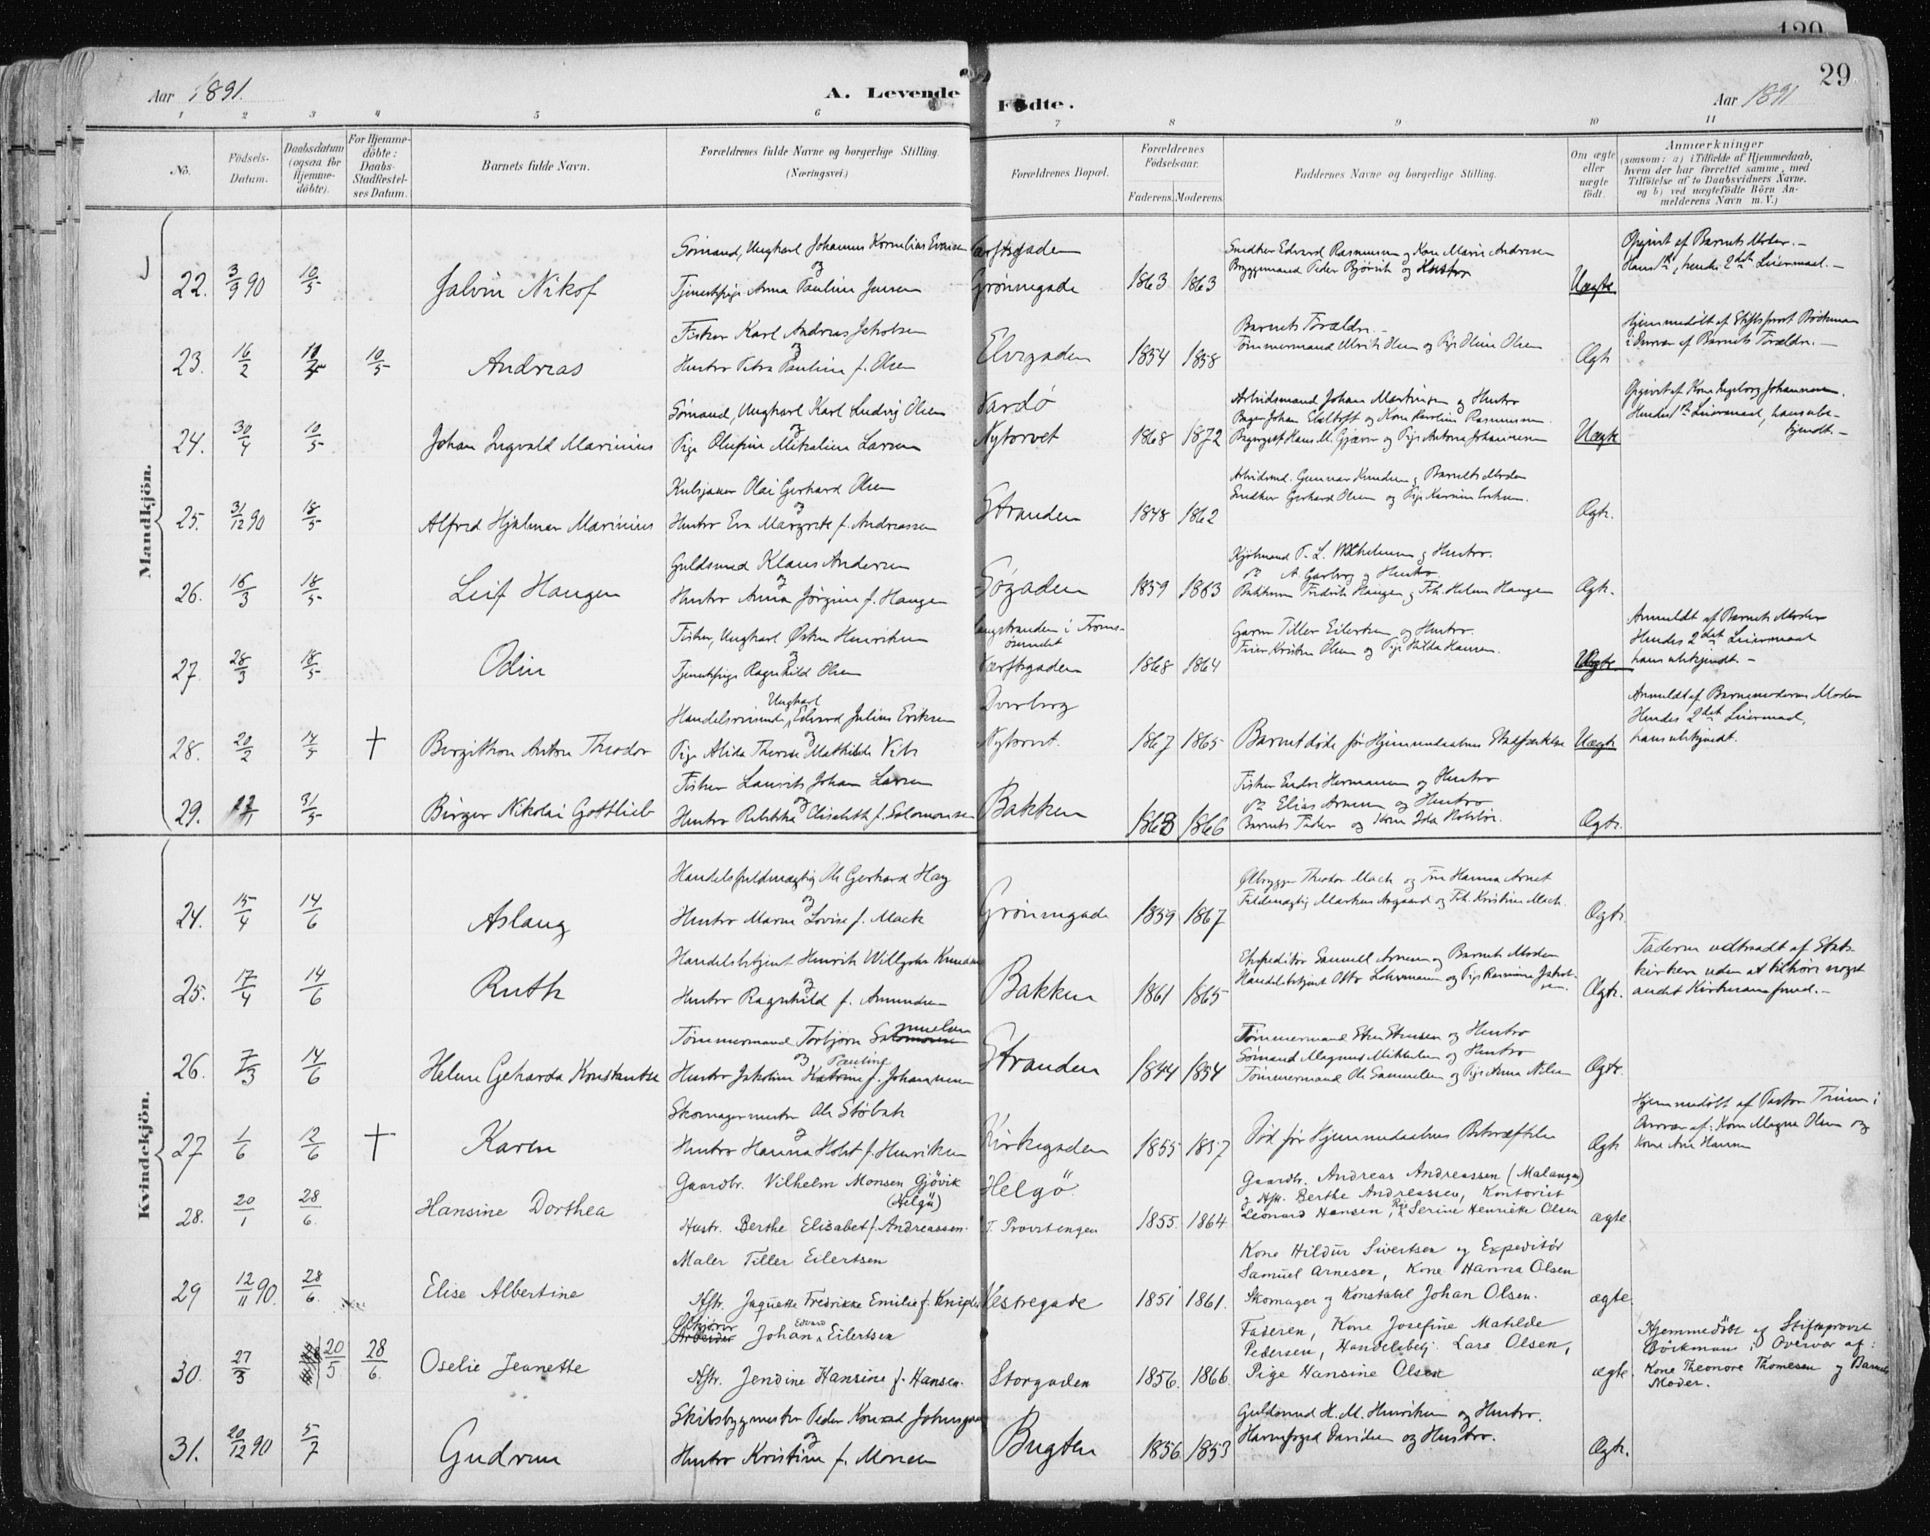 120
29
Aar 1891.
A. Levende Fødte.
Aar 1891
1 2 3 4 5 6 7 8 9 10 11
No.
Fødsels-Datum.
Daabsdatum (ogsaa for Hjemmedøbte).
For Hjemmedøbte: Daabs-Stadfæstelses Datum.
Barnets fulde Navn.
Forældrenes fulde Navne og borgerlige Stilling. (Næringsvei.)
Forældrenes Bopæl.
Forældrenes Fødselsaar.
Faderens. Moderens.
Faddernes Navne og borgerlige Stilling.
Om ægte eller uægte født.
Anmærkninger
(saasom: a) i Tilfælde af Hjemmedaab, hvem der har forrettet samme, med Tilføielse af to Daabsvidners Navne. og b) ved uægtefødte Børn Anmelderens Navn m. V.)
Mandkjøn.
Sømand, Ungkarl Johannes Kornelius
22. 3/9 90 10/5 Jalvin Nikof
og
Tjenestepige Anna Pauline Jensen
Værftsgaden
Grønnegade 1863 1863
Snedker Edvard Rasmussen og Kone Marie Andresen
Bryggemand Peder Bjørvik og Hustro
Uægte
Opgivet af Barnets Moder.-
Hans 1ste, hendes 2det Leiermaal.-
23. 16/2 10/5 Andreas
Fisker Karl Andreas Jakobsen
og
Hustro Petra Pauline f. Olsen
Elvegaden 1854 1858
Barnets Forældre.-
Tømmermand Ulrik Olsen og Pige Oline Olsen
Ægte
Hjemmedøbt af Stiftsprovst Bøckman
i Overvær af Barnets Forældre.-
24. 30/4 10/5 Johan Ingvald Marinius
Sømand, Ungkarl Karl Ludvig Olsen
og
Pige Olufine Mikaline Larsen
Vardø
Nytorvet 1868 1872
Arbeidsmand Johan Martinsen og Hustro
Bager Johan Elstoft og Kone Karoline Rasmussen
og Pige Antona Johannesen
Uægte
Opgivet af Kone Ingeborg Johannesen.
Hendes 1ste Leiermaal, hans ube-
kjendt.-
25. 31/12 90 18/5 Alfred Hjalmar Marinius
Olai Gerhard Olsen
og
Hustro Eva Margrete f. Andreassen
Stranden 1848 1862
Arbeidsmd. Gunnar Knudsen og Barnets Moder
Snedker Gerhard Olsen og Pige
Ægte.
26. 16/3 18/5 Leif Hangen
Guldsmed Klaus Andersen
og
Hustro Anna Jørgine f. Hangen
Søgaden 1859 1863
Kjøbmand P. L. Wilhelmsen og Hustro.
A. Garborg og Hustro
Fredrik Hangen og Frk. Helene Hangen
Ægte.
27. 28/3 18/5 Odin
Fisker, Ungkarl Østen Henriksen
og
Tjenestepige Ragnhild Olsen
Langstranden i Tromsøsundet
Værftsgaden 1868 1864
Garver Tiller Eilertsen og Hustro.
Kristen Olsen og Pige Hulda Hansen.
Uægte
Anmeldt af Barnets Moder
Hendes 2det Leiermaal
hans ubekjendt.-
28. 20/2 † Birgithon Anton Theodor
Ungkarl
Handelsreisende, Edvard Julius Eriksen
og
Pige Alida Therese Mathilde
Nytorvet. 1867 1865
Barnet døde før Hjemmedaabens Stadfæstelse
Uægte
Anmeldt af Barnemoderens Moder
Hendes 2det Leiermaal,
hans ubekjendt.
29. 31/5 Birger Nikolai Gottlieb
Fisker Laurits Johan Larsen
og
Hustro Rebekka Elisabeth f. Salomonsen
Bakken 1868 1866
Fisker Hermansen og Hustro
Elias Arnesen og Hustro
Barnets Fader og Kone Ida
Ægte.
Kvindekjøn.
24. 15/4 14/6 Aslaug
Handelsfuldmægtig Ole Gerhard Hay
og
Hustro Maren Lovise f. Mack
Grønnegade 1859 1867
Ølbrygger Theodor Mack og Hanna Arnet
Fuldmægtig Markus Aagaard og Frk. Kristine Mack.
Ægte.
25. 17/4 14/6 Ruth
Handelsbetjent Henrik Knudsen
og
Hustro Ragnhild f. Amundsen
Bakken 1861 1865
Expeditør Samuell Arnesen og Barnets Moder
Handelsbetjent Otto og Pige
Ægte.
Faderen udtraadt af Stats-
kirken uden at tilhøre noget
andet Kirkesamfund.-
26. 7/3 14/6 Helene Geharda Konstantse
Tømmermand Torbjørn Samuelsen
og Pauline
Hustro Jakobine Katrine f. Johannesen
Stranden 1844 1854
Tømmermand og Hustro
Sømand Magnus Mikkelsen og Hustro
Tømmermand Ole Samuelsen og Pige Anna Nilsen
Ægte.
27 1/6 12/6 † Karen
Skomagermester Ole Støbak
og
Hustro Hanna Holst f. Henriksen
Kirkegaden 1855 1857
Død før Hjemmedaabens Bekræftelse
Ægte
Hjemmedøbt af Pastor
Overvær af: Kone Magna Olsen og
Kone Ane Hansen
28. 20/1 28/6. Hansine Dorthea
Gaardbr. Vilhelm Monsen Gjövik
(Helgö)
Hustr. Berthe Elisabet f. Andreassen.
Helgö.
T. Provstengen 1855. 1864
Gaardbr. Andreas Andreassen (Malangen)
og Hstr. Berthe Andreassen, Kontorist
Leonard Hansen, Pige Serine Henrikke Olsen
ægte.
29 12/11 90. 28/6. Elise Albertine
Maler Tiller Eilertsen
Hstr. Jaquette Fredrikke Emilie f. Kreipler
Vestregade 1851 1861.
Kone Hildur Sivertsen og Expeditör
Samuel Arnesen, Kone Hanna Olsen
Skomager og Konstabel Johan Olsen.
ægte.
30. 27/3 20/5 28/6. Oselie Jeanette
Arbeider Johan Edvard Eilertsen
Hstr. Jendine Hansine f. Hansen.
Storgaden 1856. 1866.
Faderen, Kone Josefine Matilde
Pedersen, Handelsbetj. Lars Olsen,
Pige Hansine Olsen
ægte.
Hjemmedöbt af Stiftsprovst
Böckman i Overvær af:
Kone Theonore Thomesen og Barnets
Moder.
31. 20/12 90 5/7 Gudrun
Skibsbygmester Peder Konrad Johnsgaard
og
Hustro Kristine f. Monsen
Bugten 1856. 1853
Guldsmed H. M. Henriksen og Hustro.
Havnefoged Davidsen og Hustro.
Ægte.